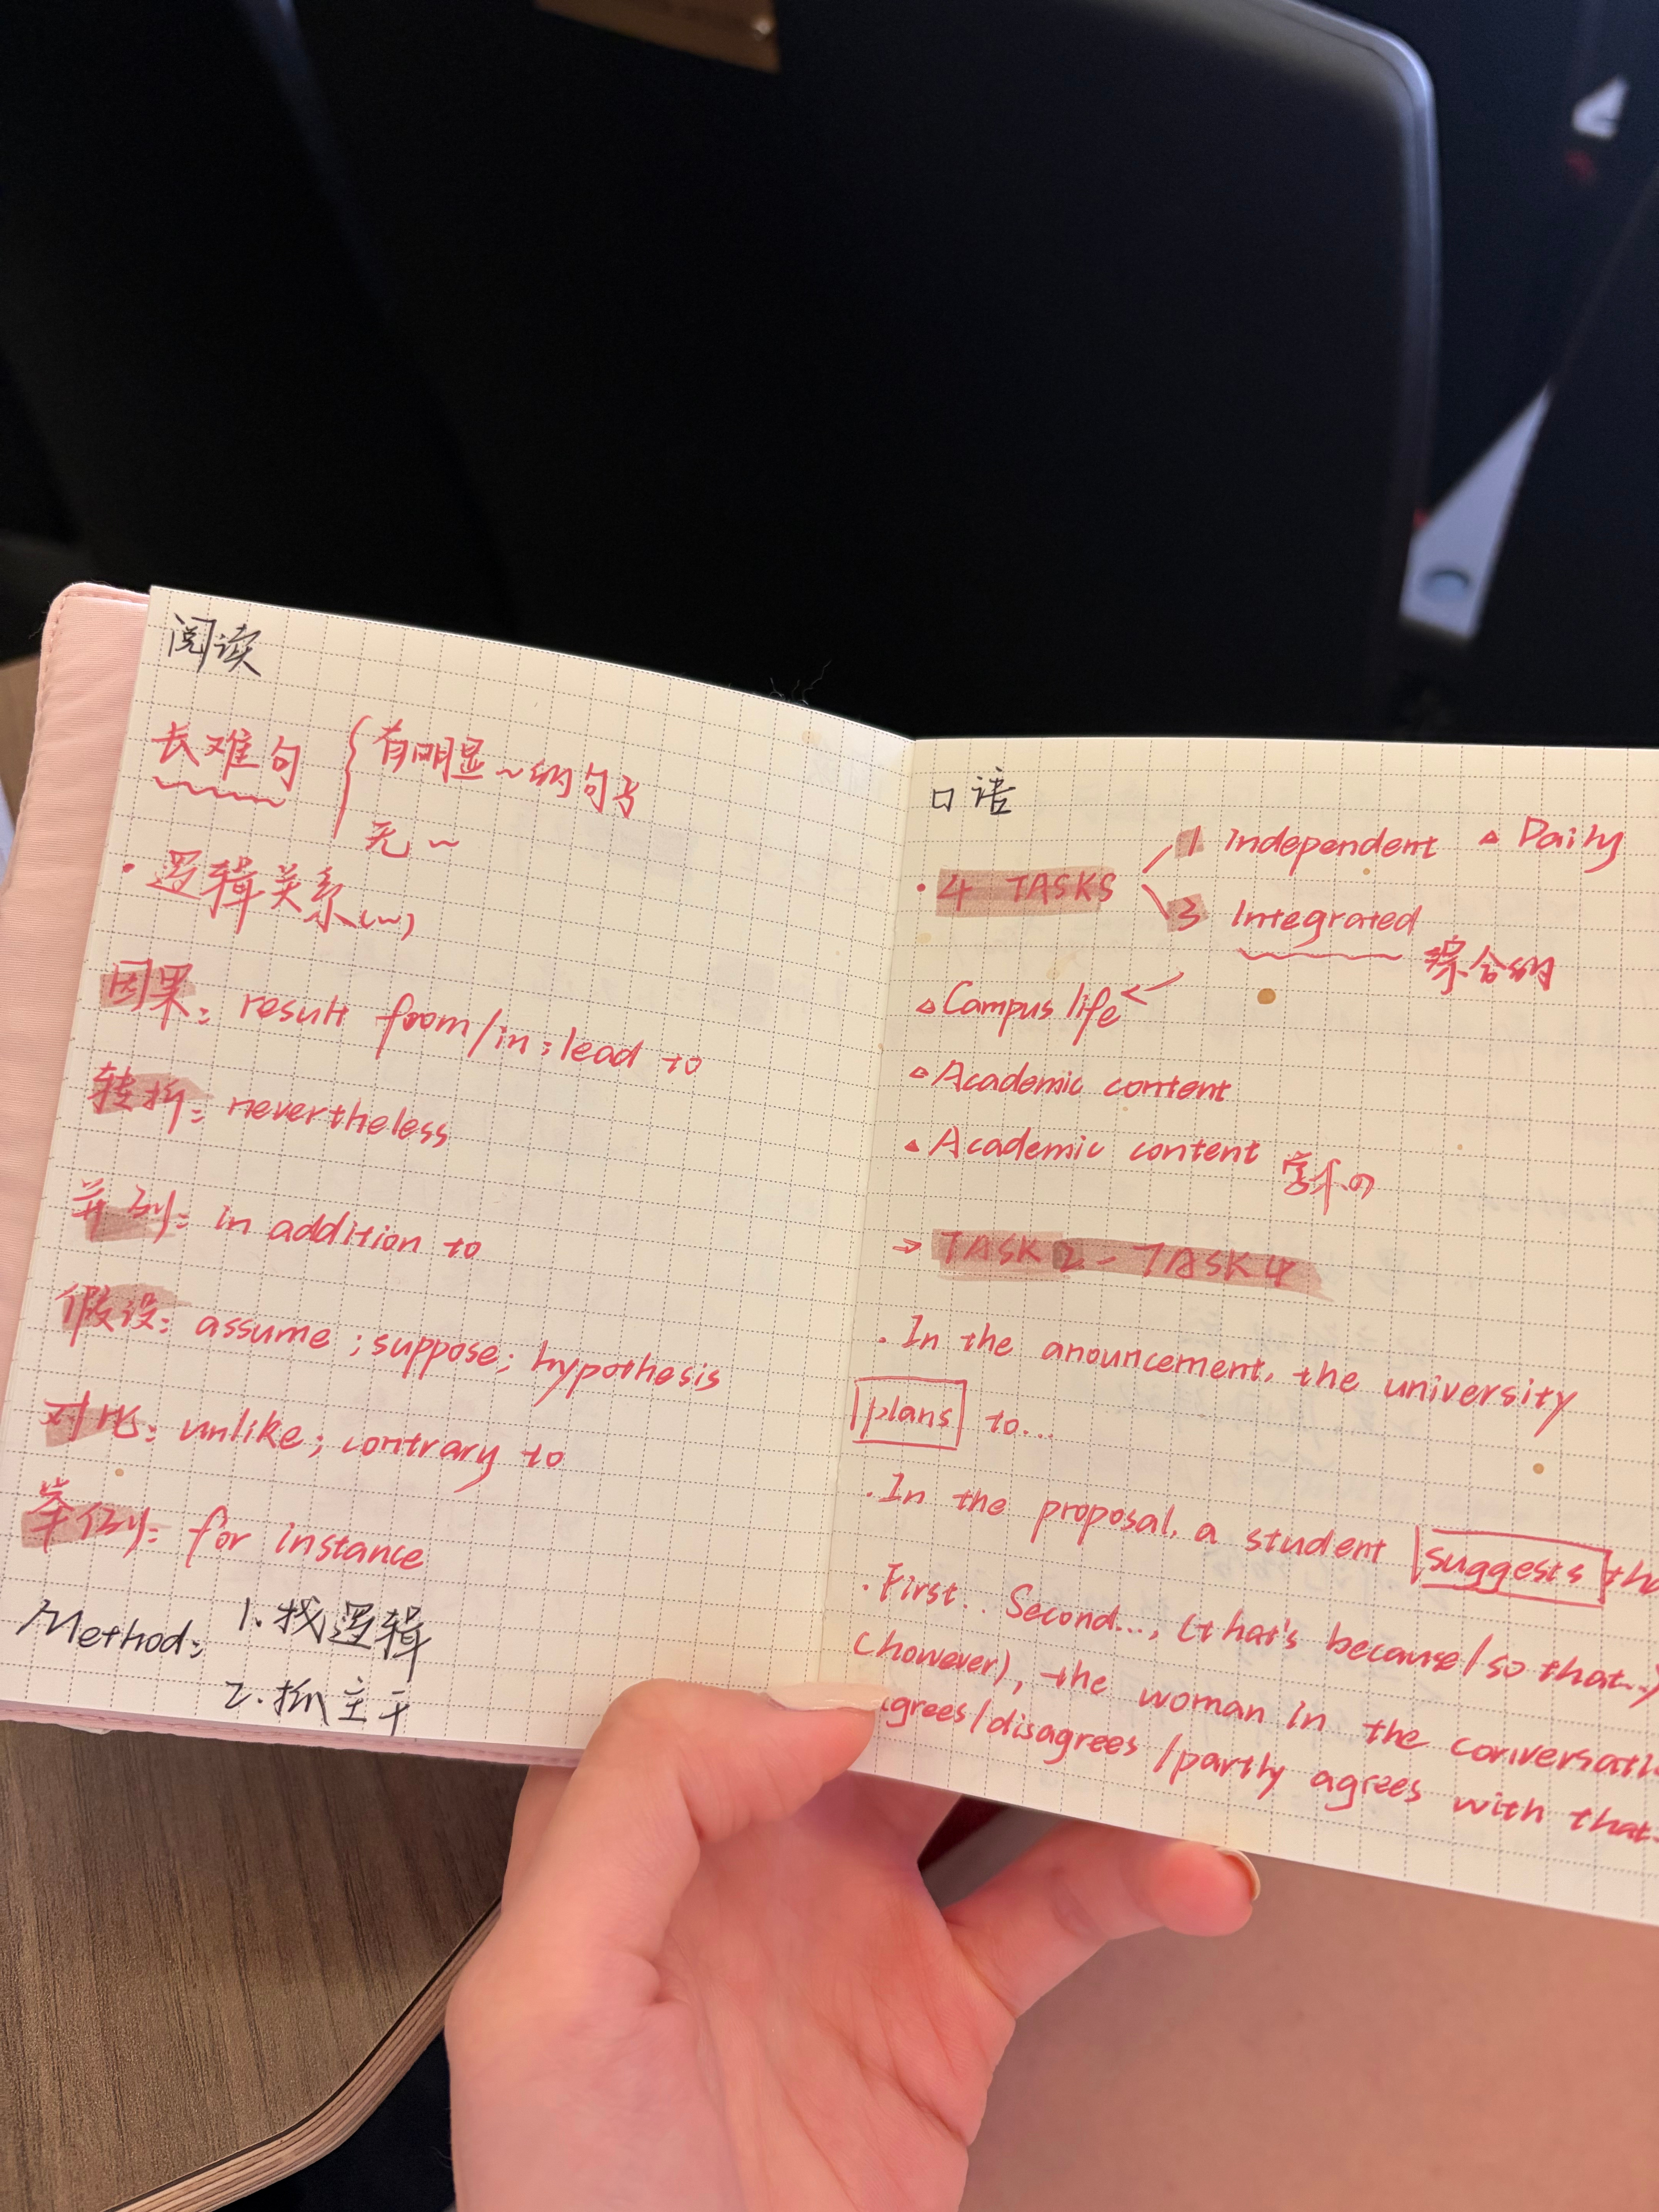 阅读
长难句 { 有明显~的句子
无~
· 逻辑关系(~)
因果: result from/in; lead to
转折: nevertheless
并列: in addition to
假设: assume ; suppose; hypothesis
对比: unlike; contrary to
举例: for instance
Method: 1. 找逻辑
2. 抓主干
口语
· 4 TASKS
1 Independent △ Daily
3 Integrated
综合的
△ Campus life ←
△ Academic content
△ Academic content 学术の
→ TASK 2 - TASK 4
· In the anouncement, the university
plans to...
· In the proposal, a student suggests tha
· First.. Second..., (that's because/so that..)
(however), the woman in the conversati
grees/disagrees/partly agrees with that